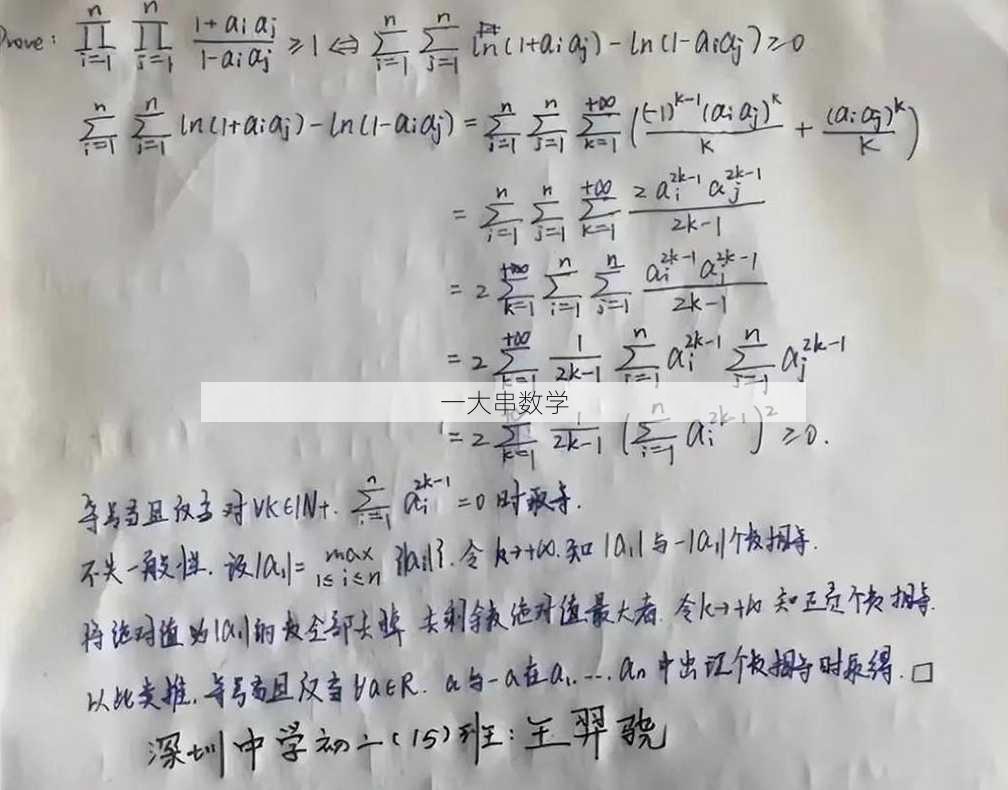 Prove: ∏_{i=1}^{n} ∏_{j=1}^{n} (1+a_i a_j)/(1-a_i a_j) ≥ 1 ⇔ ∑_{i=1}^{n} ∑_{j=1}^{n} ln(1+a_i a_j) - ln(1-a_i a_j) ≥ 0
∑_{i=1}^{n} ∑_{j=1}^{n} ln(1+a_i a_j) - ln(1-a_i a_j) = ∑_{i=1}^{n} ∑_{j=1}^{n} ∑_{k=1}^{+∞} ( (-1)^{k-1} (a_i a_j)^k / k + (a_i a_j)^k / k )
= ∑_{i=1}^{n} ∑_{j=1}^{n} ∑_{k=1}^{+∞} 2 a_i^{2k-1} a_j^{2k-1} / (2k-1)
= 2 ∑_{k=1}^{+∞} ∑_{i=1}^{n} ∑_{j=1}^{n} a_i^{2k-1} a_j^{2k-1} / (2k-1)
= 2 ∑_{k=1}^{+∞} 1/(2k-1) ∑_{i=1}^{n} a_i^{2k-1} ∑_{j=1}^{n} a_j^{2k-1}
一大串数学
= 2 ∑_{k=1}^{+∞} 1/(2k-1) ( ∑_{i=1}^{n} a_i^{2k-1} )^2 ≥ 0.
等号当且仅当对∀k∈ℕ+. ∑_{i=1}^{n} a_i^{2k-1} = 0 时取等.
不失一般性. 设|a_1| = max_{1≤i≤n} {|a_i|}. 令 k→+∞. 知 |a_1| 与 -|a_1| 个数相等.
将绝对值为|a_1|的数全部去掉 去剩余数绝对值最大者. 令k→+∞ 知正负个数相等.
以此类推. 等号当且仅当 ∀a∈R. a与-a在a_1. ..., a_n 中出现个数相等时取得. □
深圳中学初二(15)班: 王羿骁